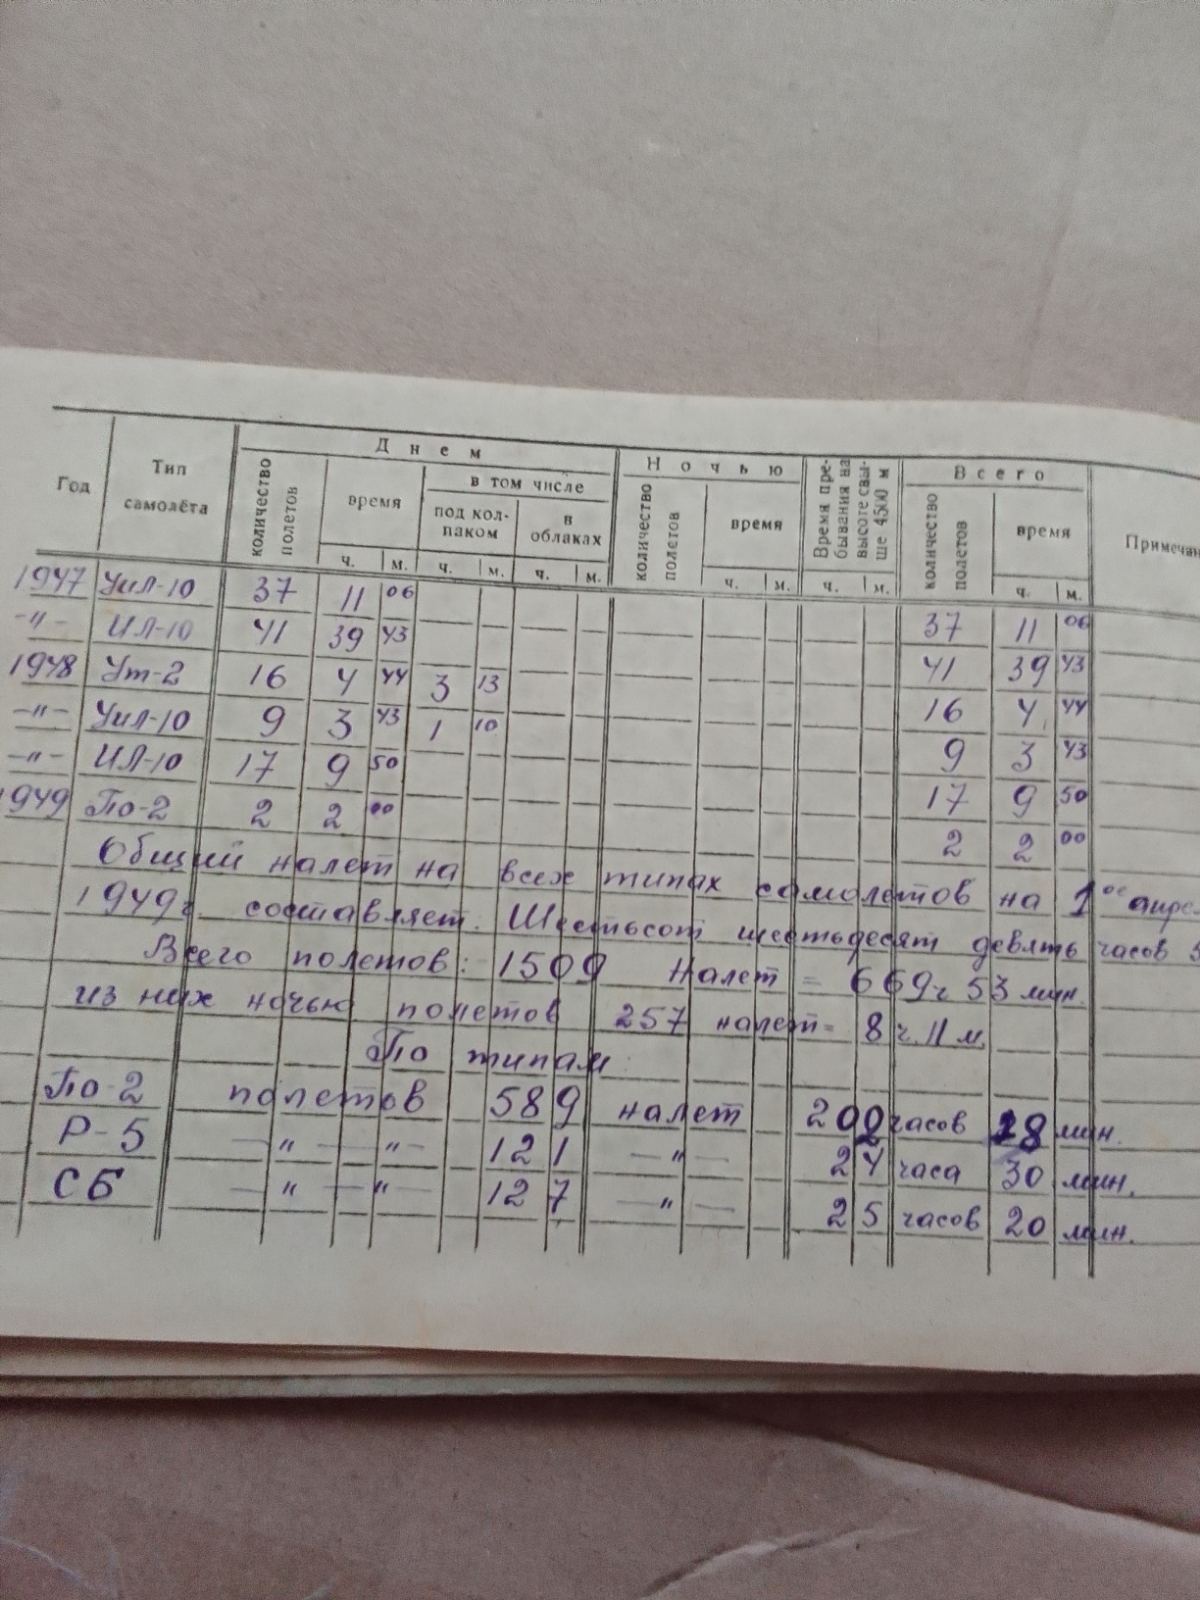 Год Тип самолёта Днем Ночью Время пребывания на высоте свыше 4500 м Всего Примечан
количество полетов время в том числе количество полетов время количество полетов время
под колпаком в облаках
ч. м. ч. м. ч. м. ч. м. ч. м. ч. м.
1947 Уил-10 37 11 06 37 11 06
-"- Ил-10 41 39 43 41 39 43
1948 Ут-2 16 4 44 3 13 16 4 44
-"- Уил-10 9 3 43 1 10 9 3 43
-"- Ил-10 17 9 50 17 9 50
1949 По-2 2 2 00 2 2 00
Общий налет на всех типах самолетов на 1ое апре
1949г составляет: Шестьсот шестьдесят девять часов 5
Всего полетов: 1509 Налет = 669ч 53 мин.
из них ночью полетов 257 налет = 8 ч. 11 м.
По типам:
По-2 полетов 589 налет 202 часов 28 мин.
Р-5 — " — — " — 121 — " — 24 часа 30 мин.
СБ — " — — " — 127 — " — 25 часов 20 мин.